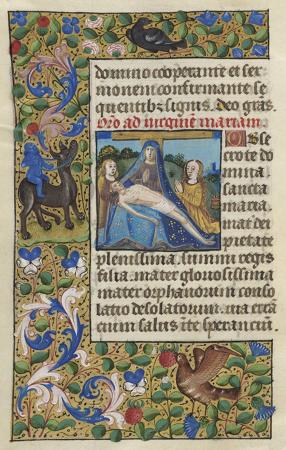 domino cooperante et ser
monem confirmante se
quentibz signis. deo gras
Oro ad uirginem mariam
Obse
cro te do
mina
sancta
maria
mat dei
pietate
plenissima. summi regis
filia. mater gloriosissima
mater orphanorum conso
latio desolatorum. uia erra
cium salus i te sperancium